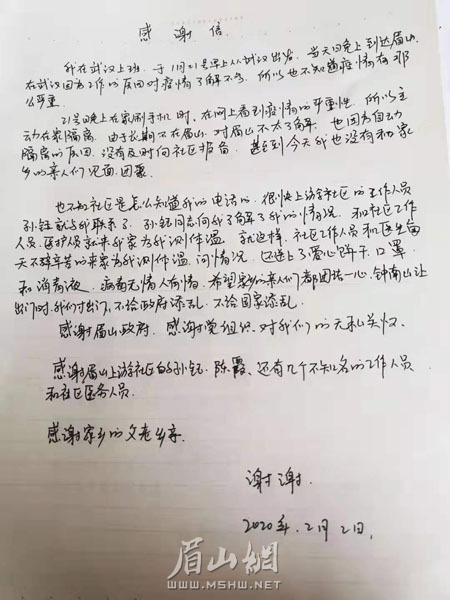 感谢信
我在武汉上班,于1月21号早上从武汉出发,当天回晚上到达眉山.
在武汉因为工作的原因对疫情了解不多,所以也不知道疫情有那
么严重.
21号晚上在家刷手机时,在网上看到疫情的严重性,所以主
动在家隔离.由于长期不在眉山,对眉山不太了解,也因为自动
隔离的原因,没有及时向社区报备.甚至到今天我也没有和家
乡的亲人们见面团聚.
也不知社区是怎么知道我的电话的,很快上游社区的工作人员
孙钰就与我联系了.孙钰同志向我了解了我的情况,和社区工作
人员、医护人员就来我家为我测体温,就这样,社区工作人员和医生每
天不辞辛苦的来家为我测体温,问情况,还送上了爱心饼干,口罩
和消毒液,病毒无情人有情,希望家乡的亲人们都团结一心,钟南山让
出门时,我们才出门,不给政府添乱,不给国家添乱.
感谢眉山政府,感谢党组织,对我们的无私关怀.
感谢眉山上游社区的孙钰,陈霞、还有几个不知名的工作人员
和社区医务人员.
感谢家乡的父老乡亲.
谢谢.
2020年.2月2日,
眉山網
WWW.MSHW.NET